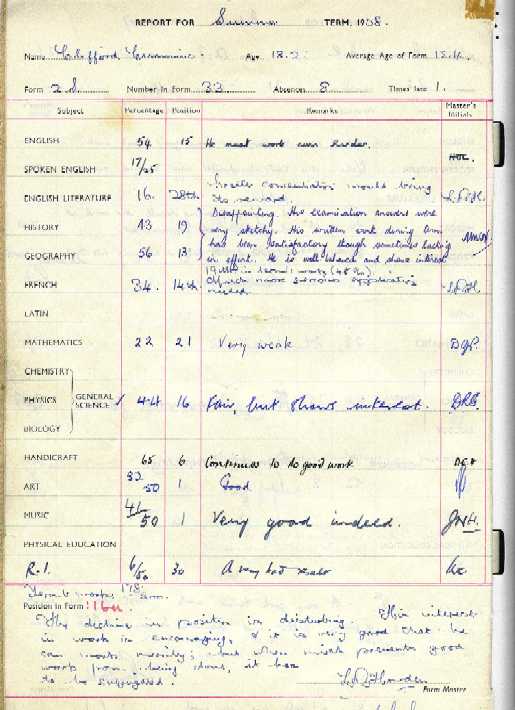 REPORT FOR Summer TERM, 1958.
Name Clifford Cummins. Age 13.2 Average Age of Form 13.4.
Form 2d. Number in Form 33 Absences 8 Times late 1.
Subject Percentage Position Remarks Master's Initials
ENGLISH 54 15 He must work even harder.
SPOKEN ENGLISH 17/25
ENGLISH LITERATURE 16. 28th Greater concentration would bring its reward.
HISTORY 43 19 Disappointing. His examination answers were
very sketchy. His written work during term
GEOGRAPHY 56 13 has been satisfactory though sometimes lacking
in effort. He is well behaved and shows interest
19th in term's work (48%).
FRENCH 34. 14th Much more serious application needed.
LATIN
MATHEMATICS 22 21 Very weak D.G.P.
CHEMISTRY
PHYSICS GENERAL SCIENCE ✓ 44 16 Fair, but shows interest.
BIOLOGY
HANDICRAFT 65 6 Continues to do good work
ART 32/50 1 Good
MUSIC 41/50 1 Very good indeed. JNH.
PHYSICAL EDUCATION
R.I. 6/50 30 A very bad result
Position in Form: 16th
The decline in position is disturbing. His interest
in work is encouraging, & it is very good that he
can work merrily; but when mirth prevents good
work from being done, it has
to be subjugated.
Form Master